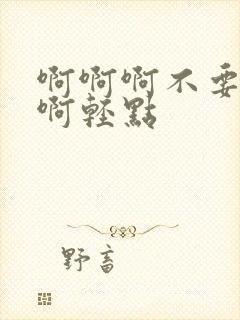 啊啊啊不要
啊輕點
野畜